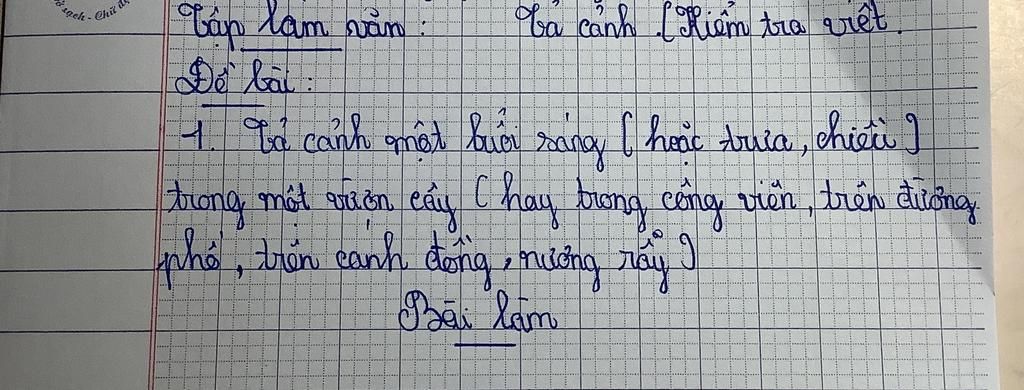 sạch - Chữ đẹ
Tập làm văn: Tả cảnh [Kiểm tra viết.
Đề bài:
1. Tả cảnh một buổi sáng [hoặc trưa, chiều]
trong một vườn cây [hay trong công viên, trên đường
phố, trên cánh đồng, nương rẫy]
Bài làm